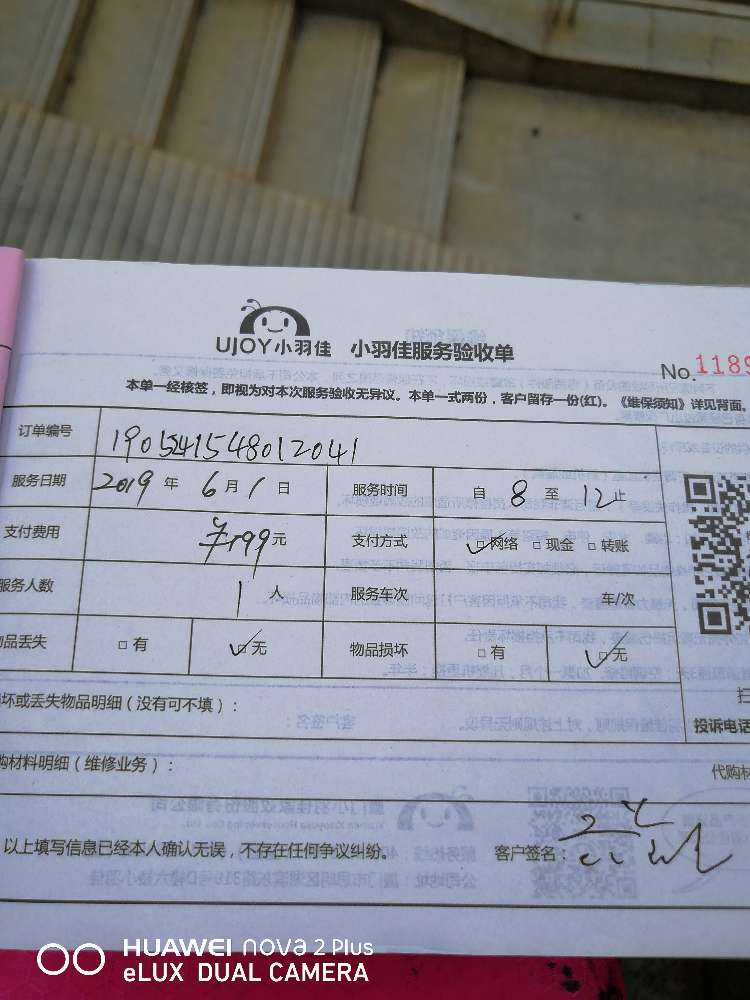 UJOY小羽佳 小羽佳服务验收单
No. 1189
本单一经核签，即视为对本次服务验收无异议。本单一式两份，客户留存一份(红)。《维保须知》详见背面。
订单编号 1905241548012041
服务日期 2019 年 6 月 1 日 服务时间 自 8 至 12 止
支付费用 ¥199 元 支付方式 ☑网络 □现金 □转账
服务人数 1 人 服务车次 车/次
品丢失 □有 ☑无 物品损坏 □有 ☑无
坏或丢失物品明细（没有可不填）：
投诉电话
购材料明细（维修业务）： 代购材
以上填写信息已经本人确认无误，不存在任何争议纠纷。 客户签名：
HUAWEI nova 2 Plus
eLUX DUAL CAMERA